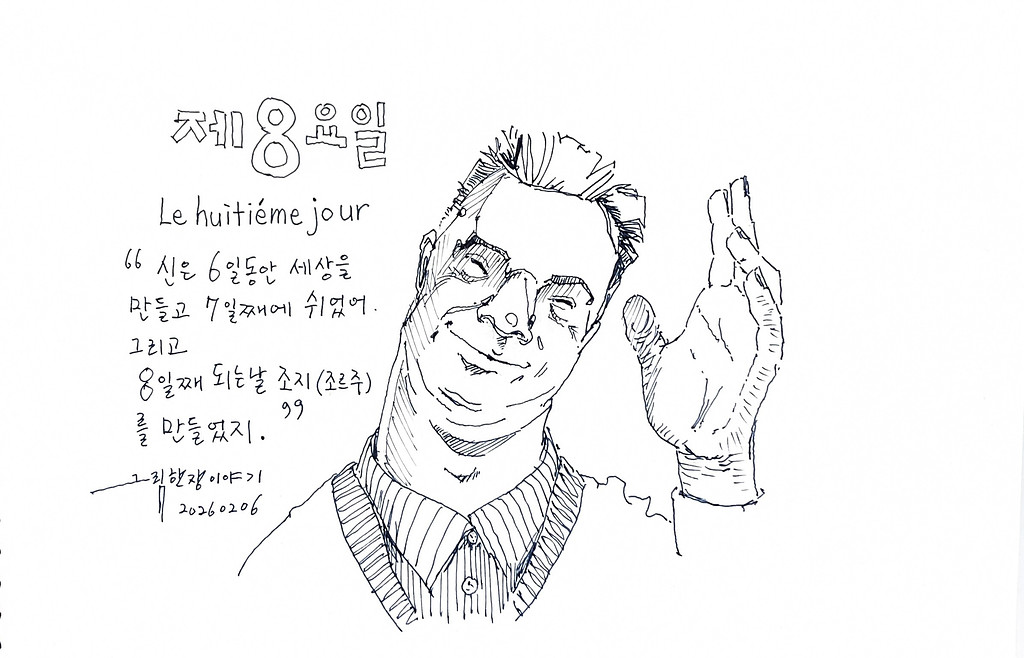 제8요일
Le huitiéme jour
“ 신은 6일동안 세상을
만들고 7일째에 쉬었어.
그리고
8일째 되는날 조지(조르주)
를 만들었지. ”
그림한장이야기
20260206